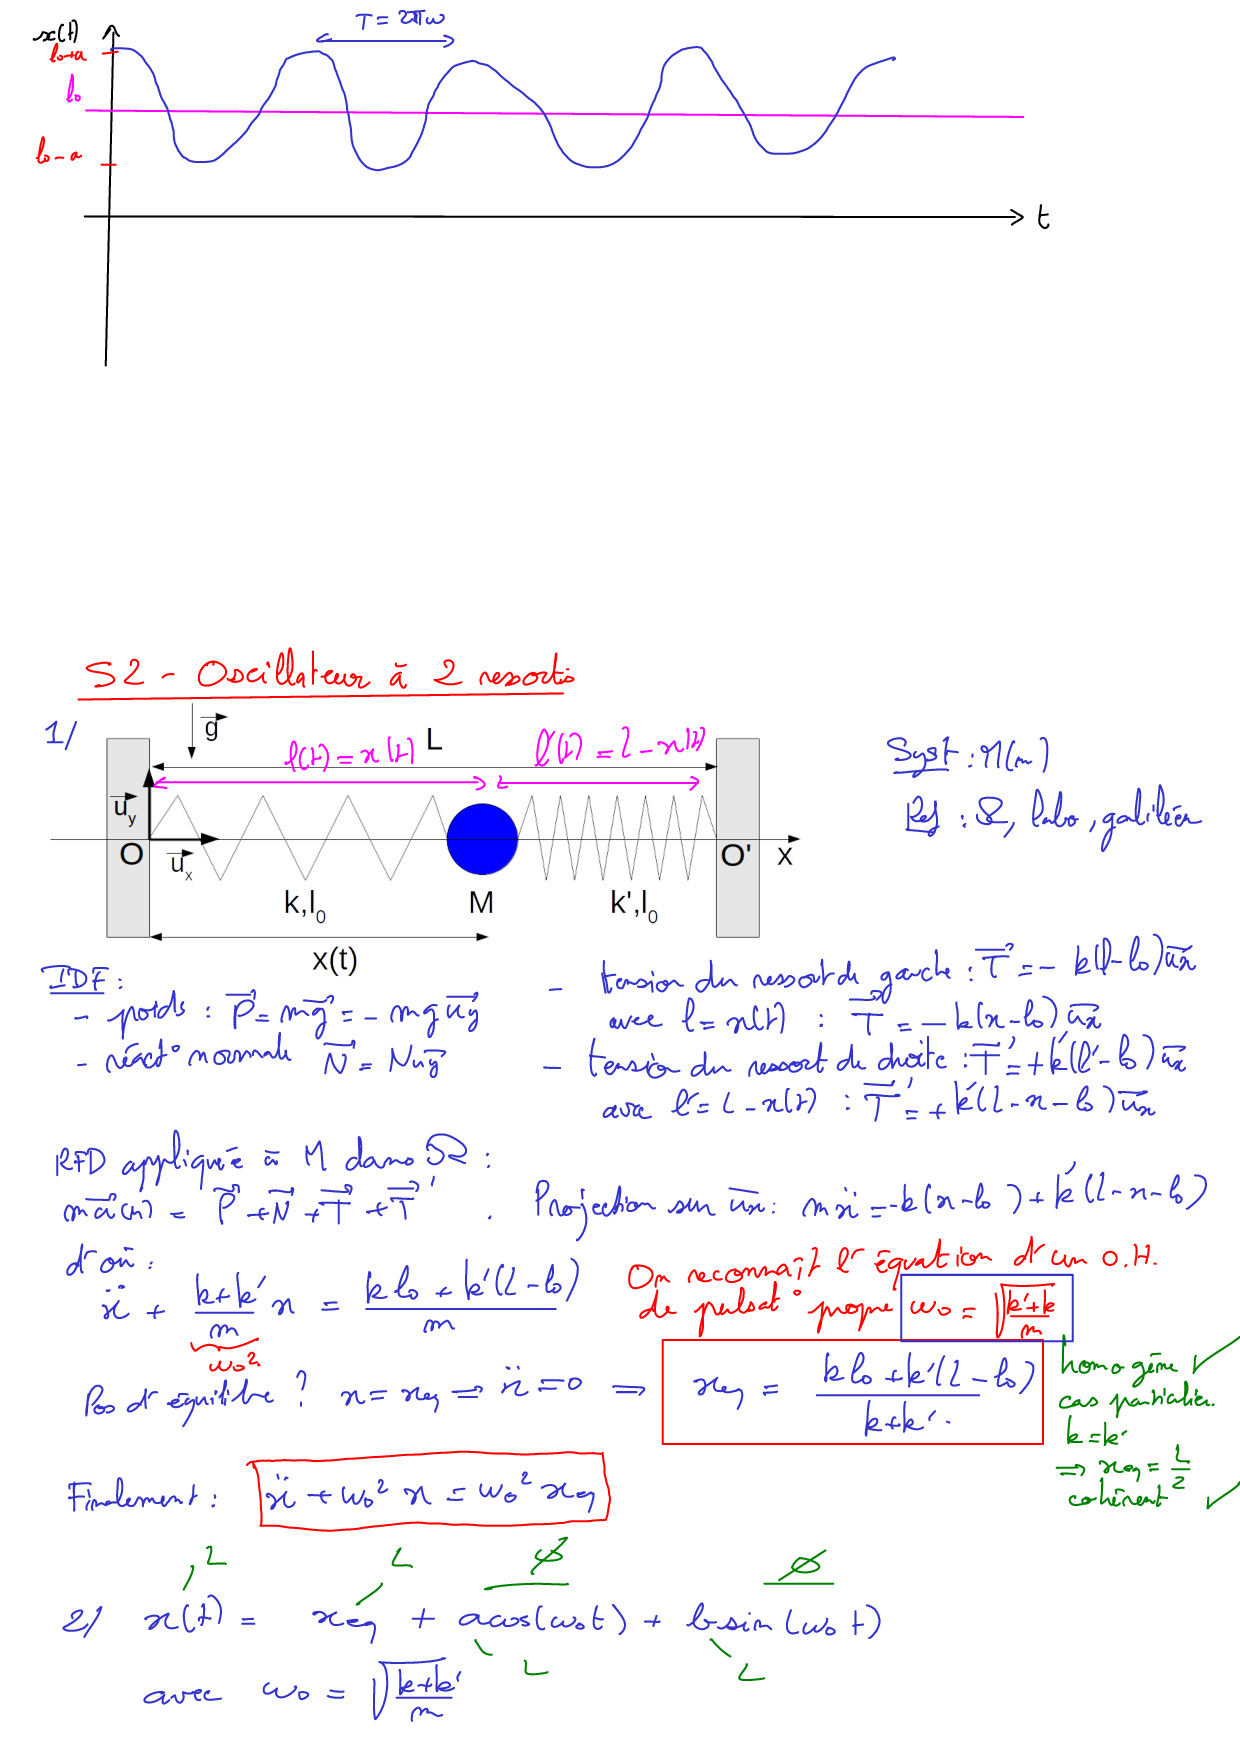 T = 2πω
x(t)
l₀+a
l₀
l₀-a
t
S2 - Oscillateur à 2 ressorts
1/
g⃗
L
l(t) = x(t)
l'(t) = L - x(t)
Syst : M(m)
Ref : R, labo, galiléen
u⃗y
O
u⃗x
O'
x
k,l₀
M
k',l₀
x(t)
IDF :
- poids : P⃗ = mg⃗ = - mg u⃗y
- réact° normale N⃗ = N u⃗y
- tension du ressort de gauche : T⃗ = - k(l-l₀) u⃗x
avec l = x(t) : T⃗ = - k(x-l₀) u⃗x
- tension du ressort de droite : T⃗' = + k'(l'-l₀) u⃗x
avec l' = L - x(t) : T⃗' = + k'(L-x-l₀) u⃗x
RFD appliquée à M dans R :
m a⃗(M) = P⃗ + N⃗ + T⃗ + T⃗' . Projection sur u⃗x : mẍ = -k(x-l₀) + k'(L-x-l₀)
d'où :
ẍ + (k+k')/m x = (kl₀ + k'(L-l₀))/m
ω₀²
On reconnaît l'équation d'un O.H.
de pulsat° propre ω₀ = √((k'+k)/m)
Pos d'équilibre ? x = xeq ⇒ ẍ = 0 ⇒ xeq = (kl₀ + k'(L-l₀))/(k+k')
homogène ✓
cas particulier.
k = k'
⇒ xeq = L/2
cohérent ✓
Finalement : ẍ + ω₀² x = ω₀² xeq
, L L ∅ ∅
2/ x(t) = xeq + a cos(ω₀t) + b sin(ω₀t)
L L
avec ω₀ = √((k+k')/m)